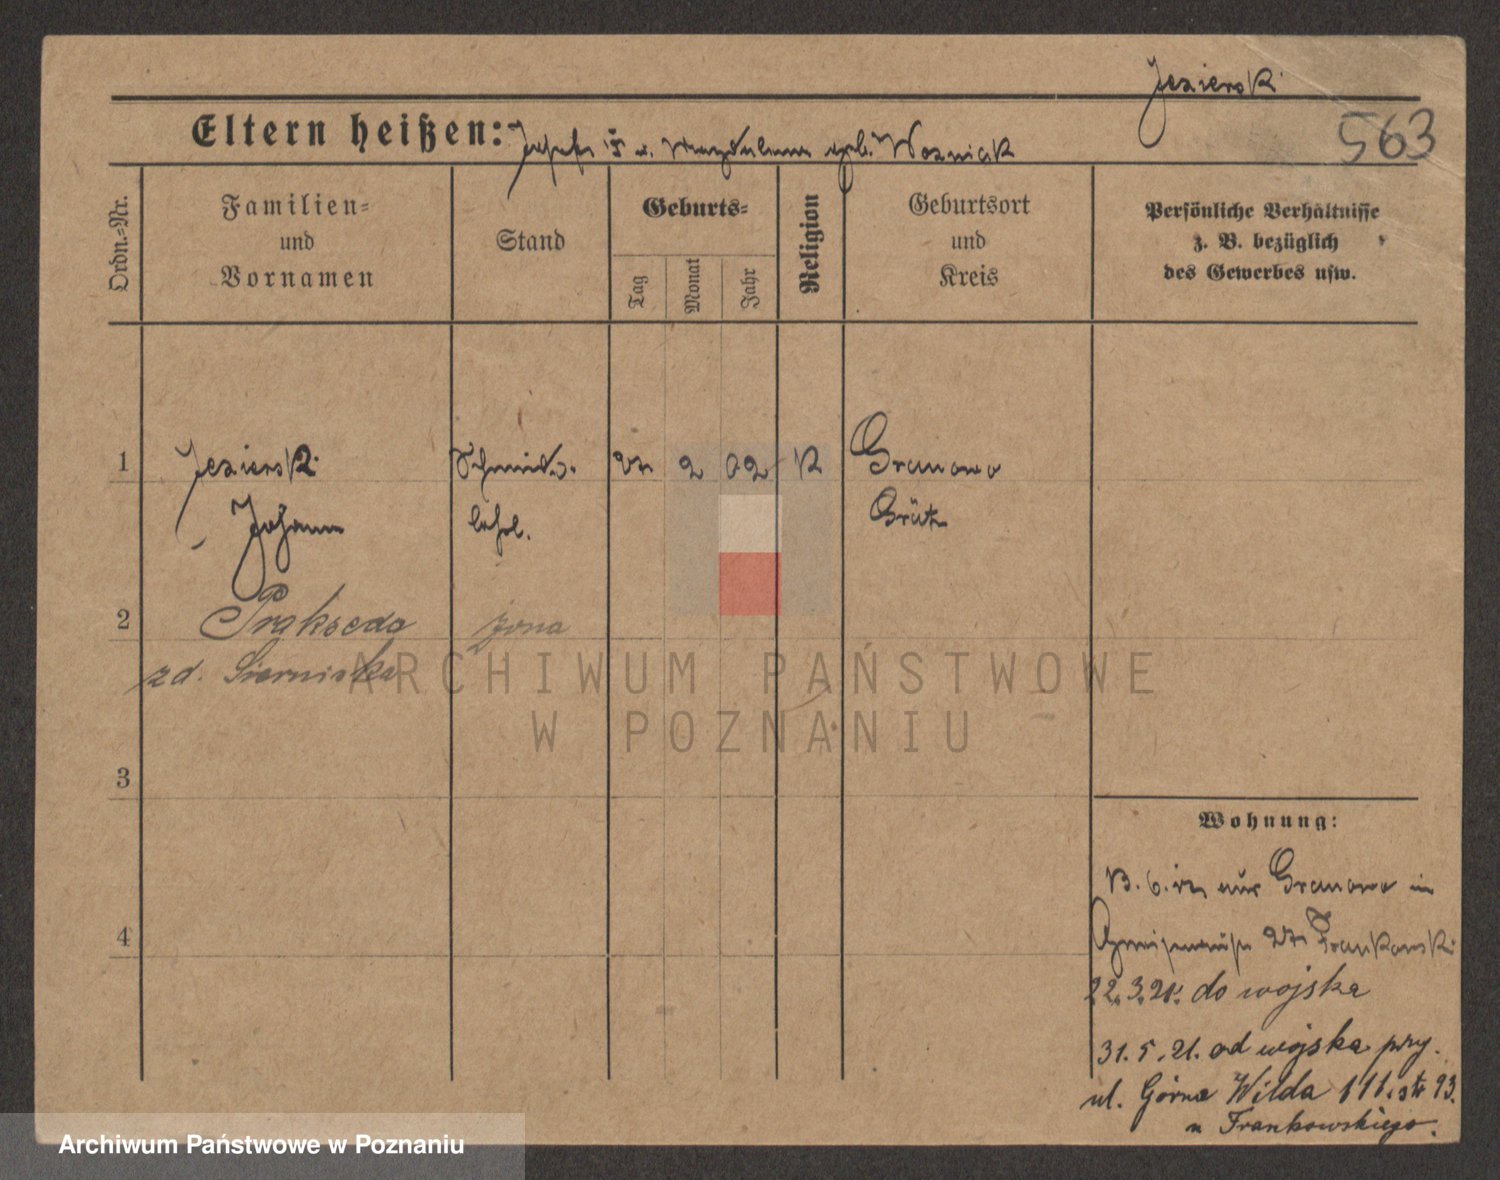 Jezierski
563
Eltern heißen: Josefs u. Magdalena geb. Wozniak
Ordn.-Nr.
Familien-
und
Vornamen
Stand
Geburts-
Tag
Monat
Jahr
Religion
Geburtsort
und
Kreis
Persönliche Verhältnisse
z. B. bezüglich
des Gewerbes usw.
1
Jezierski
Johann
Schmied
lehrl.
27
2
02
K
Granowo
Grätz
2
Prakseda
żona
zd. Sierniska
ARCHIWUM PAŃSTWOWE
W POZNANIU
3
4
Wohnung:
aus Granowo in
27 Frankowski
22.3.21. do wojska
31.5.21. od wojska przy.
ul. Górna Wilda 111. str 93.
u Frankowskiego.
Archiwum Państwowe w Poznaniu